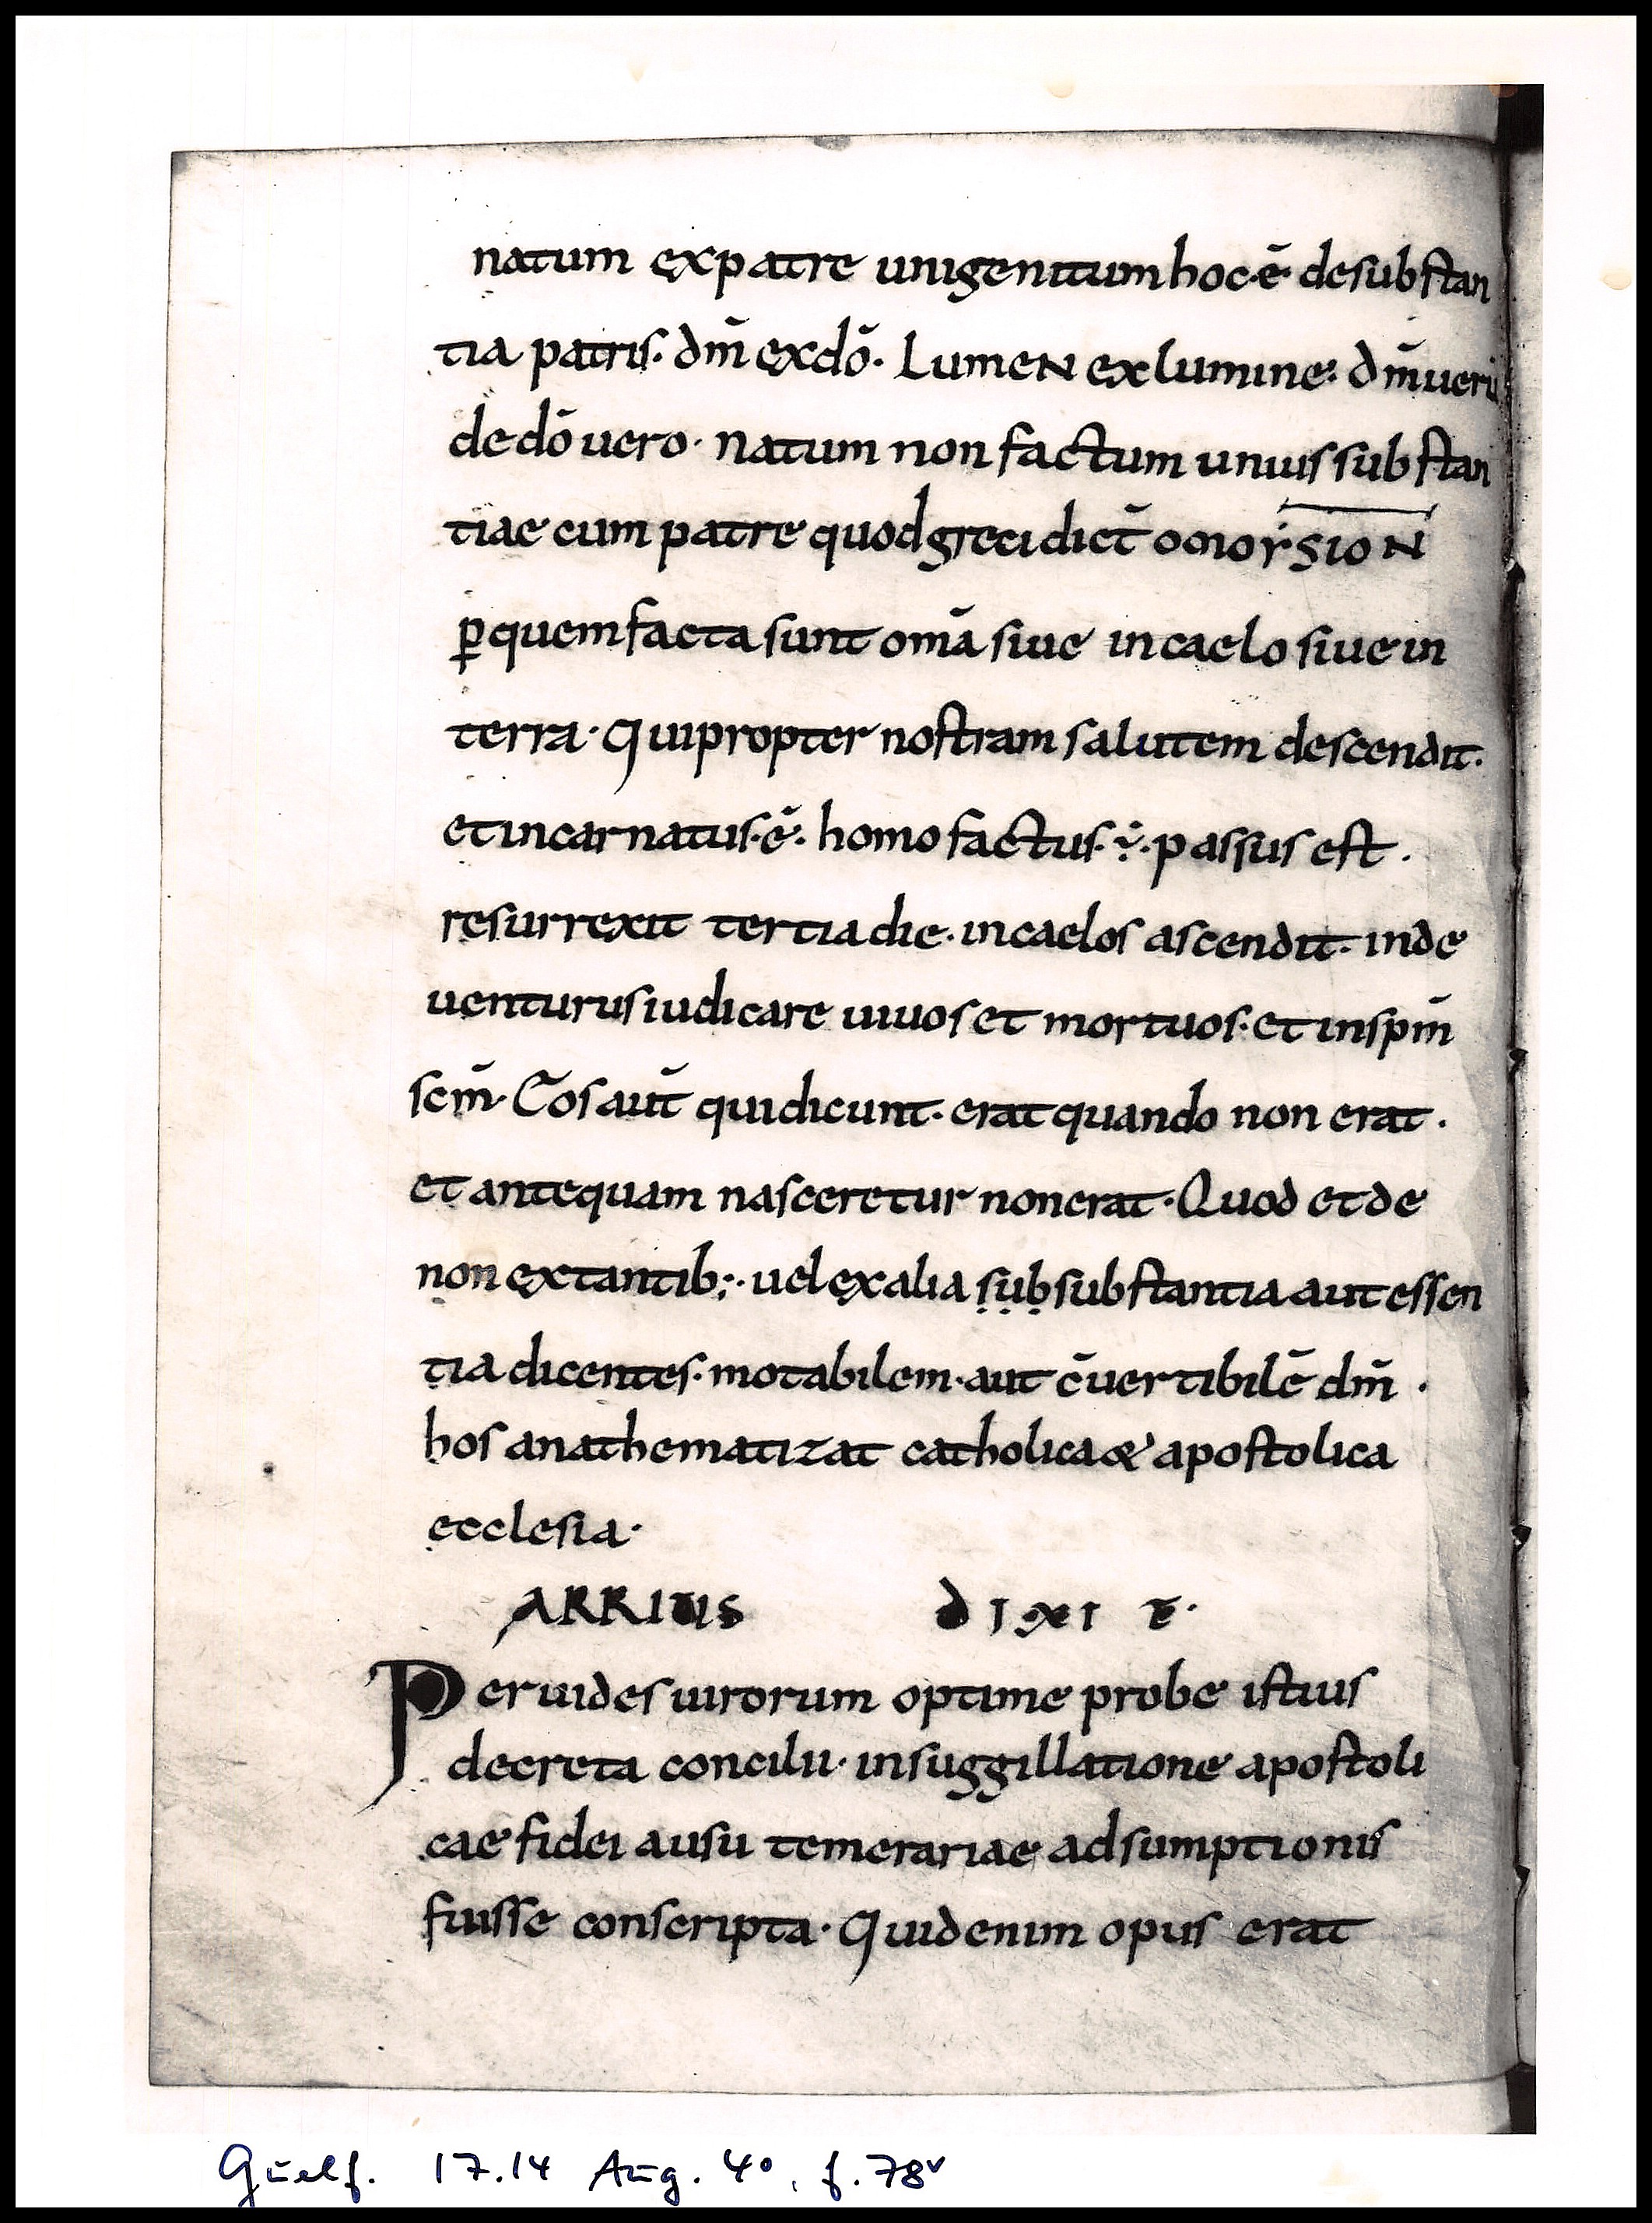 natum expatre unigenitum hoc·ē· desubstan
tia patris· dm̄ exdō· LumeN exlumine· dm̄ ueru
de dō uero· natum non factum unius substan
tiae cum patre quod greci dict̄ omoysioN
ꝑ quem facta sunt omā siue incaelo siue in
terra· Qui propter nostram salutem descendit·
et incarnatus·ē· homo factus·ē· passus est·
resurrexit tertia die· incaelos ascendit· inde
uenturus iudicare uiuos et mortuos· et inspm̄
scm̄· Eos aut̄ qui dicunt· erat quando non erat·
et antequam nasceretur non erat· Quod et de
non extantib;· uel exalia ṣụḅsubstantia aut essen
tia dicentes· motabilem· aut c̄uertibilē dm̄·
hos anathematizat catholica & apostolica
ecclesia·
ARRIUS DIXIT·
Peruides uirorum optime probe istius
decreta concilii· insuggillatione apostoli
cae fidei ausu temerariae adsumptionis
fuisse conscripta· Quid enim opus erat
Guelf. 17.14 Aug. 4°, f. 78v